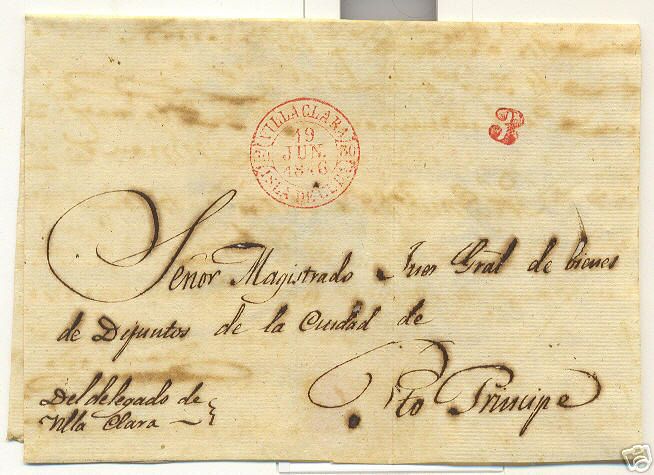 VILLA CLARA
3
19
JUN.
1846
ISLA DE CUBA
Señor Magistrado Juez Gral de bienes
de Difuntos de la Ciudad de
Pto Principe
Del delegado de
Villa Clara